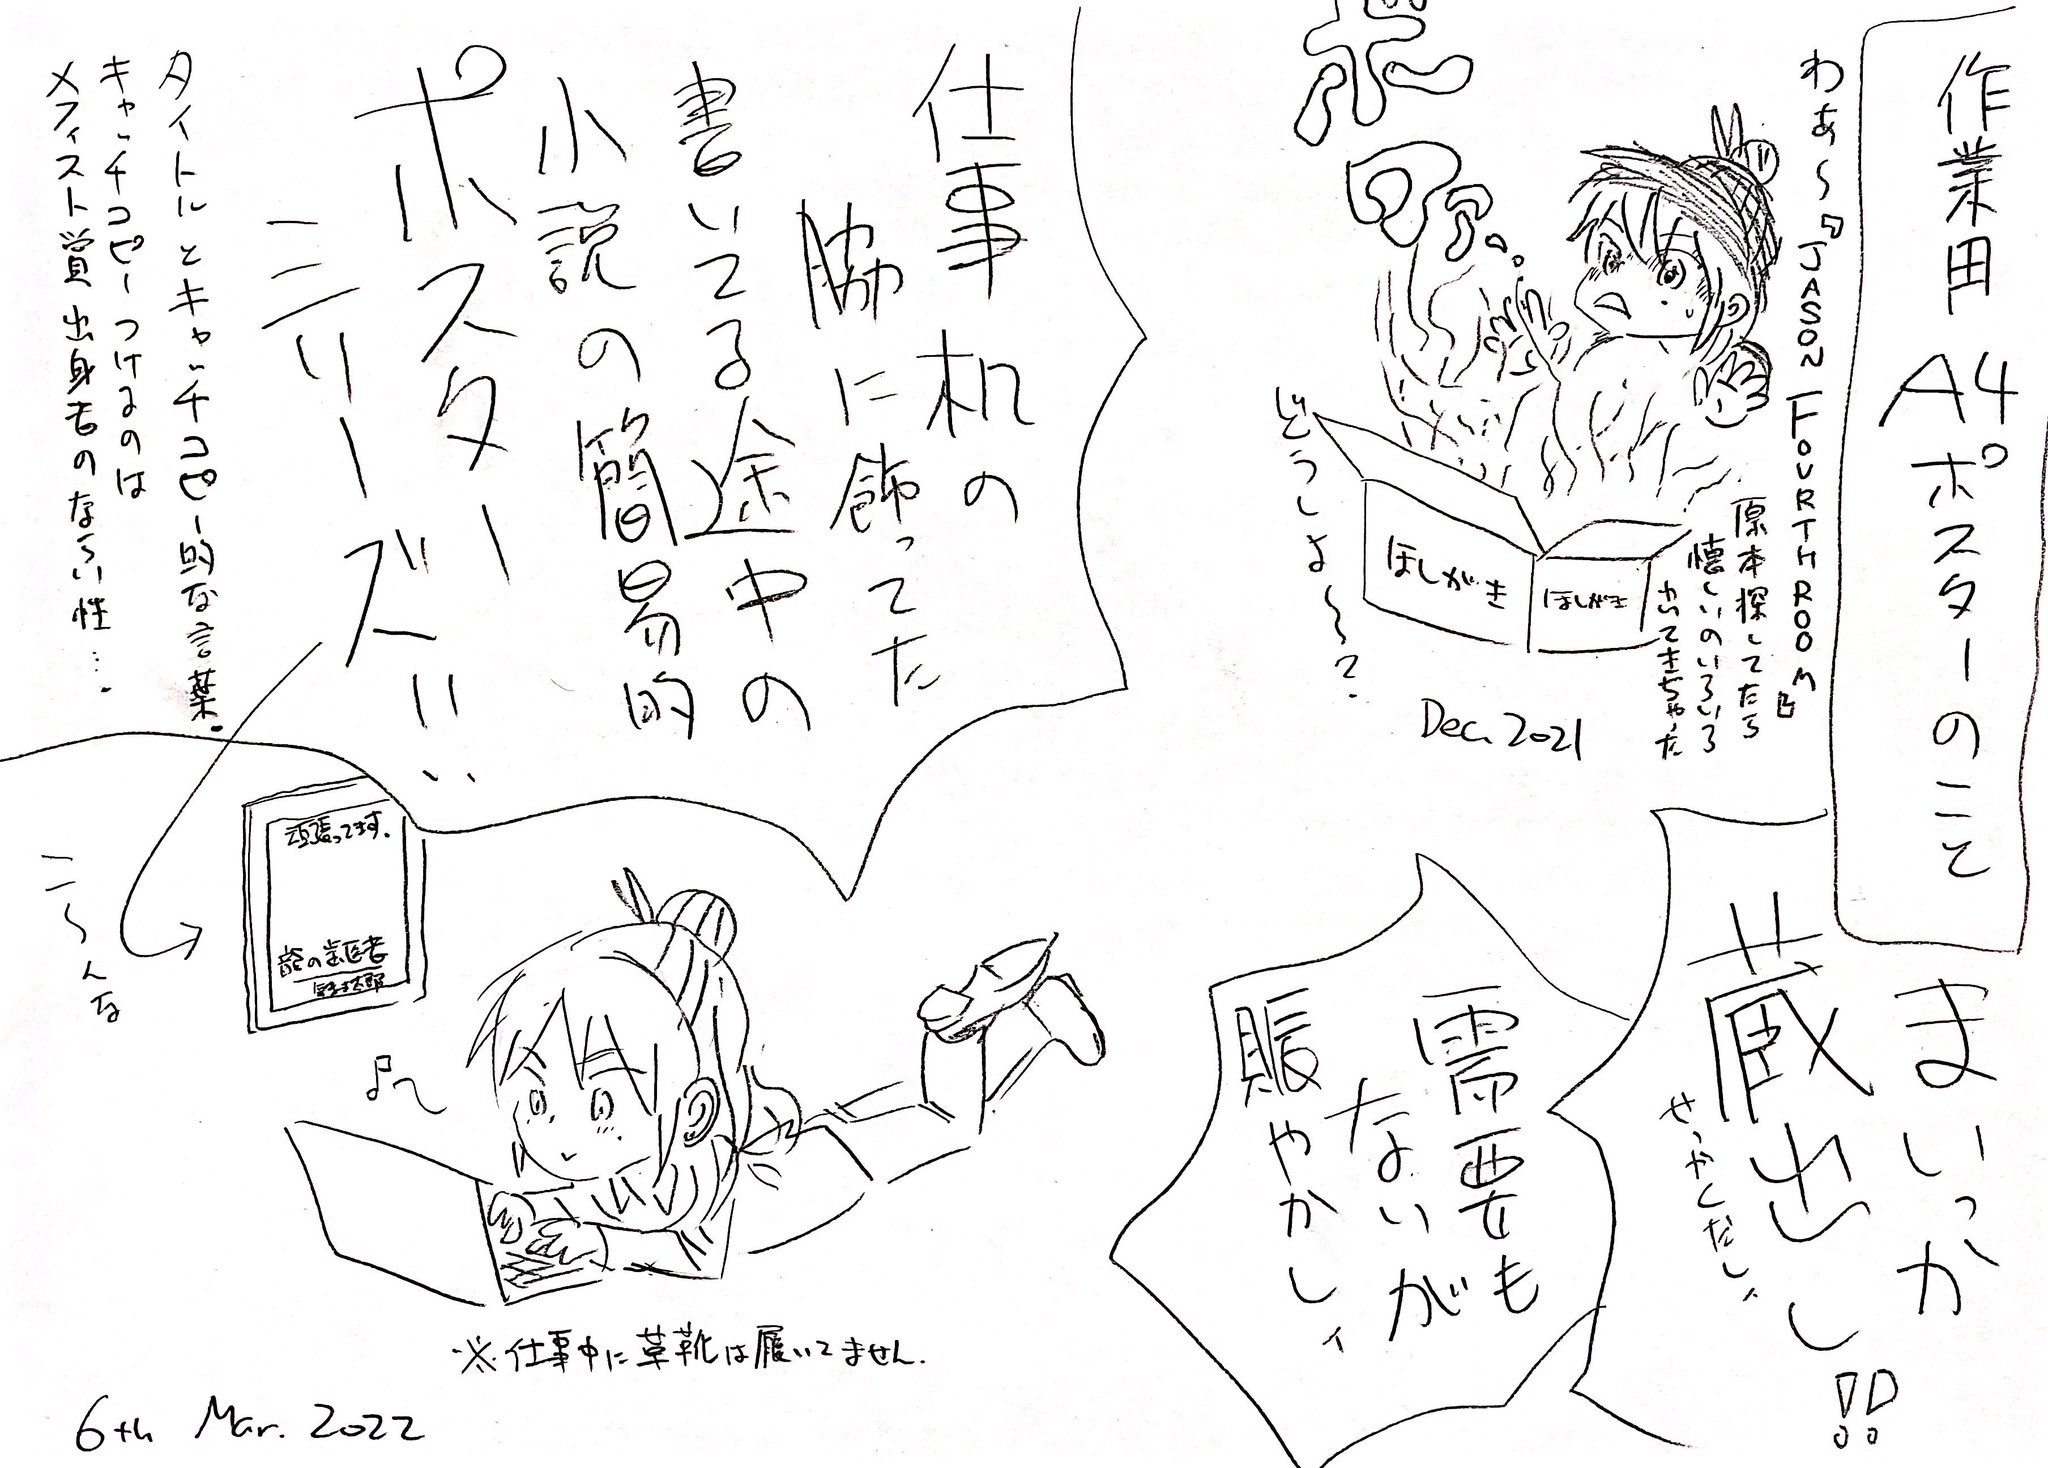 作業用A4ポスターのこと
わあ〜『JASON FOURTH ROOM』
原本探してたら
懐しいのいろいろ
わいてきちゃった
どうしよ〜〜?
ほしがき
ほしがき
Dec. 2021
まいっか
蔵出し!!
せっかくだし、
需要も
ないが
賑やかし、
仕事机の
脇に飾ってた
書いてる途中の
小説の簡易的
ポスター
シリーズ!!
タイトルとキャッチコピー的な言葉。
キャッチコピーつけるのは
メフィスト賞出身者のならい性…。
こ〜んな
頑張ってます。
龍の歯医者
※仕事中に草靴は履いてません.
6th Mar. 2022